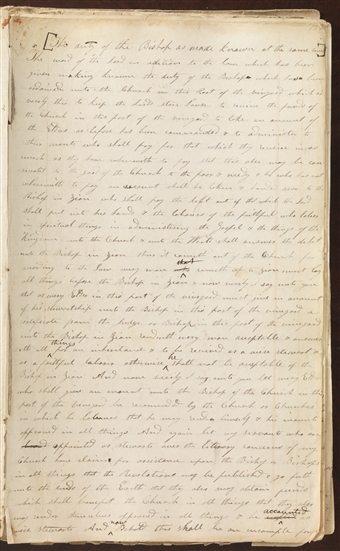 [The duty of the Bishop as made known at the same is
the word of the Lord in addition to the law which has been
given making known the duty of the Bishop which has been
ordained unto the Church in this Part of the vineyard which is
verily this to keep the Lords store house to receive the funds of
the Church in this part of the vineyard to take an account of
the Elders as before has been commanded & to administer to
their wants who shall pay for that which they receive in as
much as they have wherewith to pay that this also may be con
secrated to the good of the Church to the poor & needy & he who hath not
wherewith to pay an account shall be taken & handed over to the
Bishop in Zion who shall pay the debt out of that which the Lord
shall put into his hands & the labours of the faithful who labor
in spiritual things in administering the Gospel & the things of the
Kingdom unto the Church & unto the World shall answer the debt
unto the Bishop in Zion thus it cometh out of the Church for
according to the law every man that cometh up to Zion must lay
all things before the Bishop in Zion & now verily I say unto you
that as every Elder in this part of the vineyard must give an account
of his stewardship unto the Bishop in this part of the vineyard a
certificate from the Judge or Bishop in this part of the vineyard
unto the Bishop in Zion rendereth every man acceptable & answereth
all things for an inheritance & to be received as a wise steward &
as a faithful labourer otherwise he shall not be accepted of the
Bishop in Zion And now verily I say unto you let every Elder
who shall give an account unto the Bishop of the Church in this
part of the vineyard be recommended by the Church or Churches
in which he labours that he may render himself & his accounts
approved in all things And again let my servants who are
appointed as stewards over the literary concerns of my
Church have claim for assistance upon the Bishop or Bishops
in all things that the Revelations may be published & go forth
unto the ends of the Earth that they also may obtain funds
which shall benefit the Church in all things that they also
may render themselves approved in all things & be accounted
wise stewards And now behold this shall be an ensample for